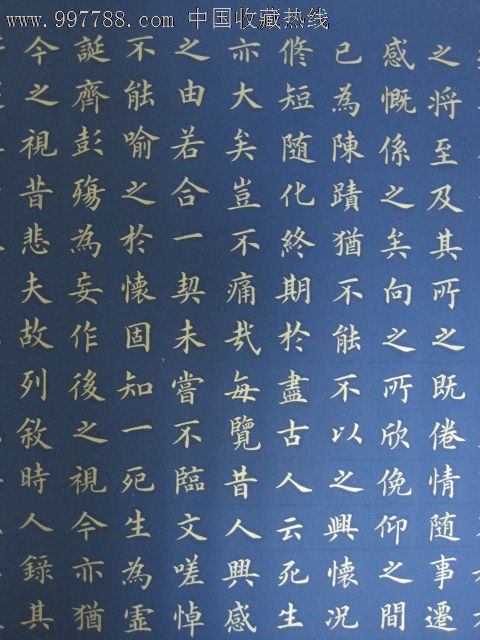 www.997788.com 中国收藏热线
之将至及其所之既倦情随事遷
感慨係之矣向之所欣俛仰之間
已為陳蹟猶不能不以之興懷况
修短随化終期於盡古人云死生
亦大矣豈不痛哉每覽昔人興感
之由若合一契未嘗不臨文嗟悼
不能喻之於懷固知一死生為虛
誕齊彭殤為妄作後之視今亦猶
今之視昔悲夫故列敘時人錄其